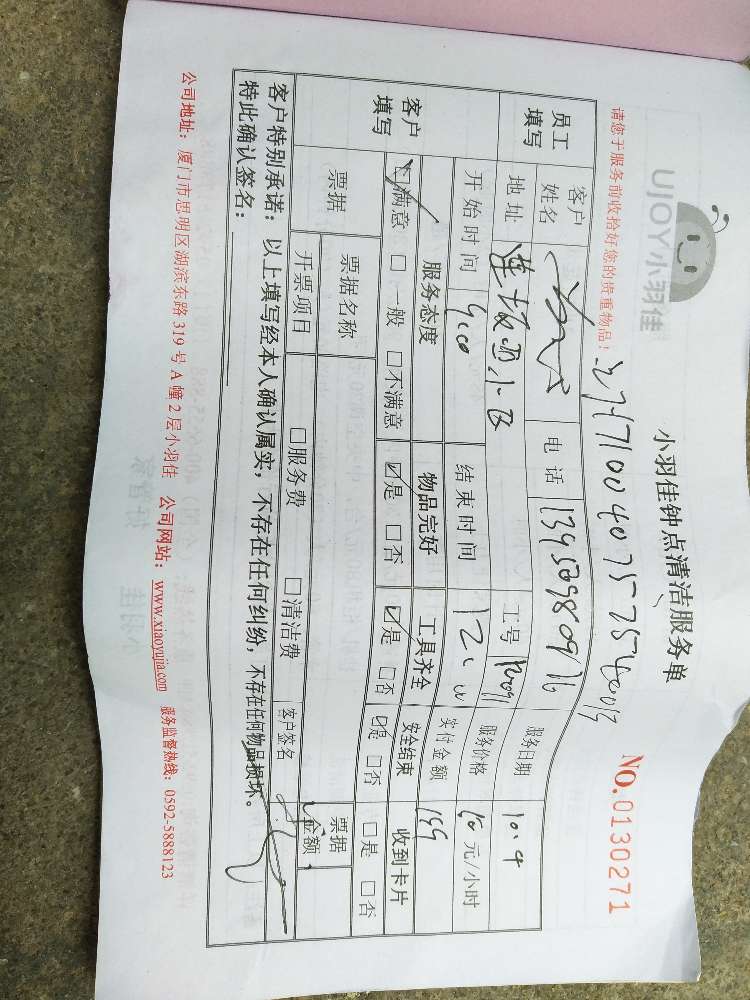 UJOY小羽佳
小羽佳钟点清洁服务单
NO.0130271
请您于服务前收拾好您的贵重物品！
员工填写 客户姓名 电话 服务日期 10.4
地址 莲坂西小区 工号 服务价格 元/小时
开始时间 结束时间 实付金额
客户填写 服务态度 物品完好 工具齐全 安全结束 收到卡片
☑满意 □一般 □不满意 ☑是 □否 ☑是 □否 ☑是 □否 □是 □否
票据 票据名称 票据金额
开票项目 □服务费 □清洁费 客户签名
客户特别承诺：以上填写经本人确认属实，不存在任何纠纷，不存在任何物品损坏。
特此确认签名：
公司地址：厦门市思明区湖滨东路 319 号 A 幢 2 层小羽佳 公司网站：www.xiaoyujia.com 服务监督热线：0592-5888123